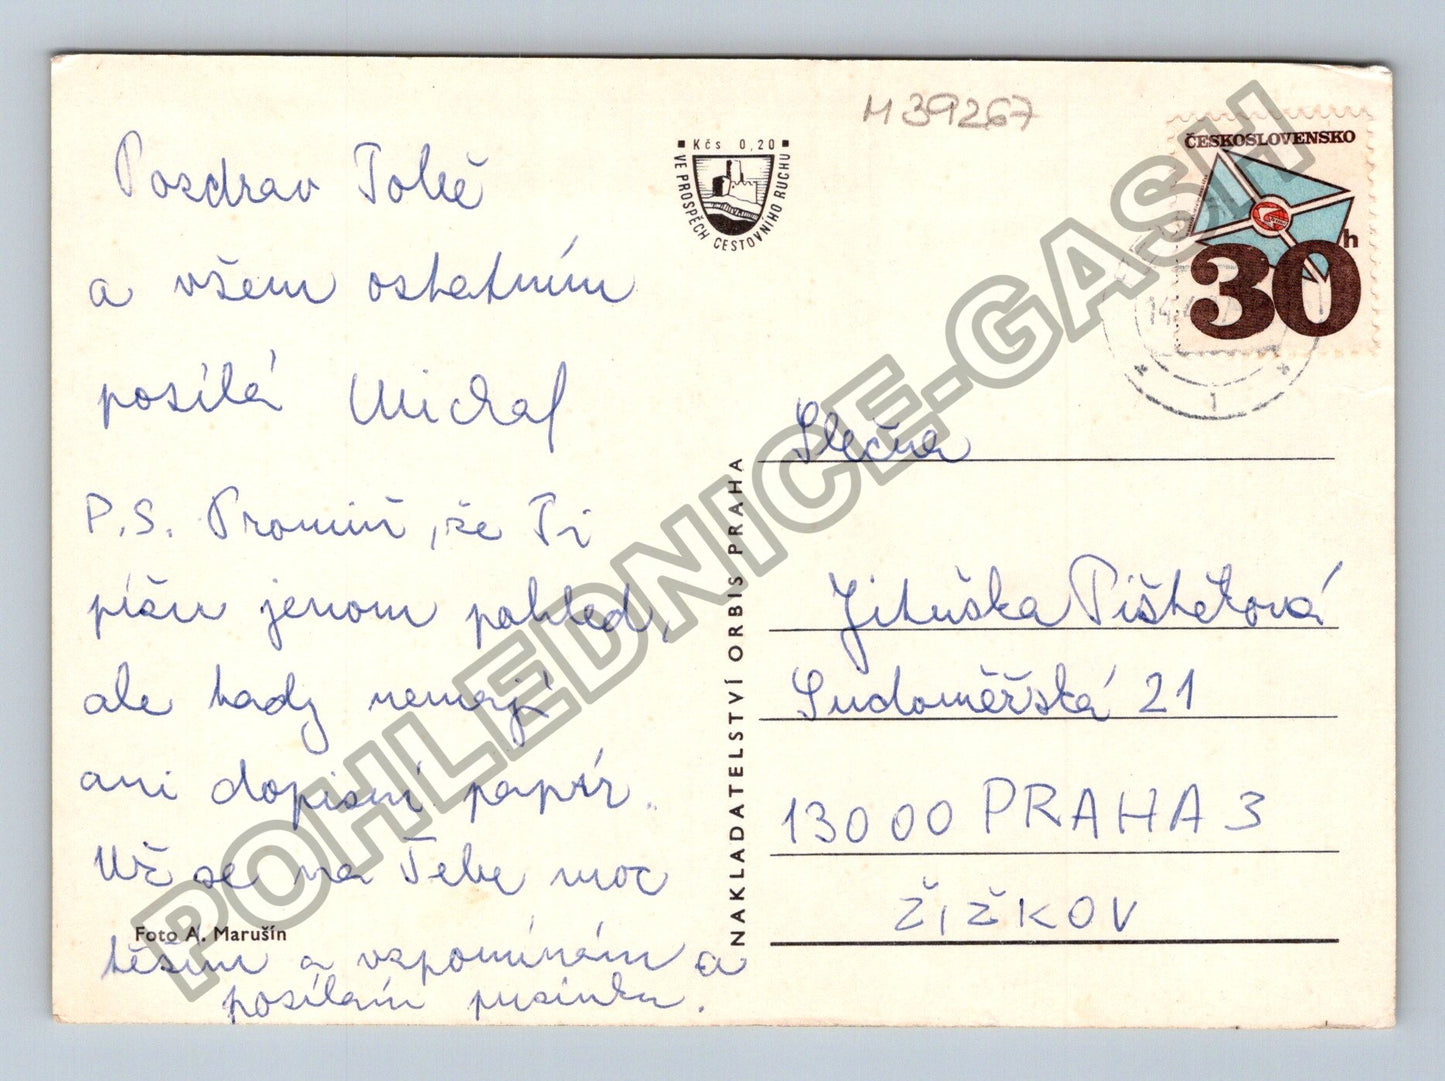 M 39267
Kčs 0,20
VE PROSPĚCH CESTOVNÍHO RUCHU
ČESKOSLOVENSKO
30h
Pozdrav Tobě
a všem ostatním
posílá Michal
P.S. Promiň, že Ti
píšu jenom pohled,
ale tady nemají
ani dopisní papír.
Už se na Tebe moc
těším a vzpomínám a
posílám pusinku.
Foto A. Marušín
NAKLADATELSTVÍ ORBIS PRAHA
Slečna
Jituška Pištěková
Sudoměřská 21
13000 PRAHA 3
ŽIŽKOV
POHLEDNICE-GASH